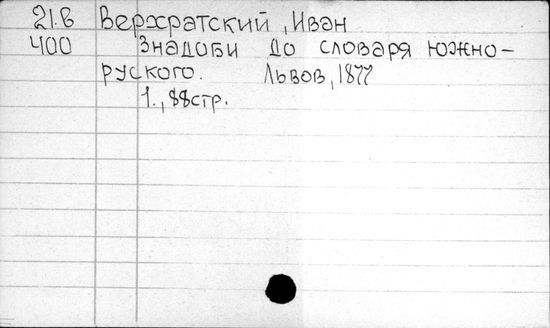 21.В Верхратский, Иван
400 Знадоби до словаря южно-
руского. Львов, 1877
1., 88стр.